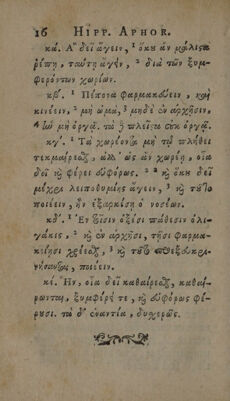 16 HIPP. APHOR.
κά. Ἃ δεῖ ἄγειν, ¹ ὅκυ ἂν μάλιϛα
ῥέπῃ, ταύτῃ ἄγειν, ² διὰ τῶν ξυμ-
φερόντων χωρίων.
κβ'. ¹ Πέπονα φαρμακεύειν, καὶ
κινέειν, ² μὴ ὠμὰ, ³ μηδὲ ἐν ἀρχῇσιν,
⁴ ἢν μὴ ὀργᾷ. τὰ ἢ πλεῖϛα οὐκ ὀργᾷ.
κγ'. ¹ Τὰ χωρέοντα μὴ τῷ πλήθει
τεκμαίρεσθαι, ἀλλ' ὡς ἂν χωρέῃ, οἷα
δεῖ καὶ φέρει εὐφόρως. ² καὶ ὅκυ δεῖ
μέχρι λειποθυμίης ἄγειν, ³ καὶ τῦτο
ποιέειν, ἢν ἐξαρκέσῃ ὁ νοσέων.
κδ'. ¹ Ἐν τοῖσιν ὀξέσι πάθεσιν ὀλι-
γάκις, ² καὶ ἐν ἀρχῇσι, τῇσι φαρμα-
κείῃσι χρέεσθαι, ³ καὶ τῦτο προεξευκρι-
νήσαντας, ποιέειν.
κέ. Ἢν, οἷα δεῖ καθαίρεσθαι, καθαί-
ρωνται, ξυμφέρει τε, καὶ εὐφόρως φέ-
ρυσι. τὰ δ' ἐναντία, δυχερῶς.